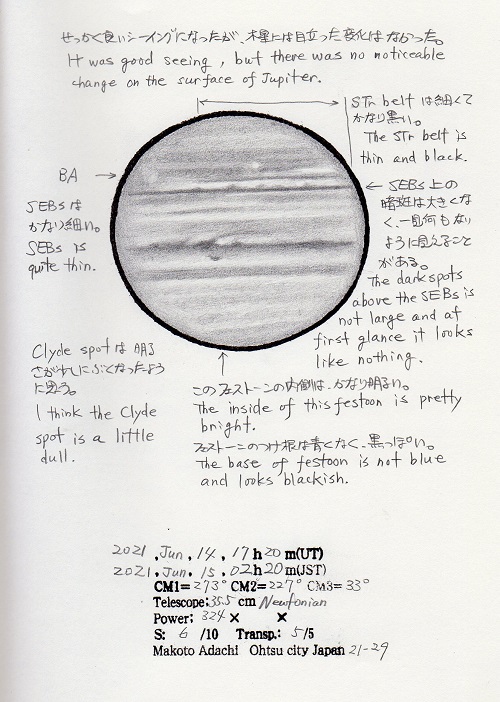 せっかく良いシーイングになったが、木星には目立った変化はなかった。
It was good seeing, but there was no noticeable
change on the surface of Jupiter.
STr belt は細くて
かなり黒い。
The STr belt is
thin and black.
BA
SEBs は
かなり細い。
SEBs is
quite thin.
SEBs 上の
暗斑は大きくな
く、一見何もない
ように見えること
がある。
The dark spots
above the SEBs is
not large and at
first glance it looks
like nothing.
Clyde spot は明る
さがれしにぶくなったよう
に思う。
I think the Clyde
spot is a little
dull.
このフェストーンの内側は、かなり明るい。
The inside of this festoon is pretty
bright.
フェストーンのつけ根は青くなく、黒っぽい。
The base of festoon is not blue
and looks blackish.
2021, Jun, 14, 17h 20 m(UT)
2021, Jun. 15, 02h 20 m(JST)
CM1= 273° CM2= 227° CM3= 33°
Telescope: 35.5 cm Newtonian
Power: 324 × ×
S: 6 /10 Transp.: 5/5
Makoto Adachi Ohtsu city Japan 21-29